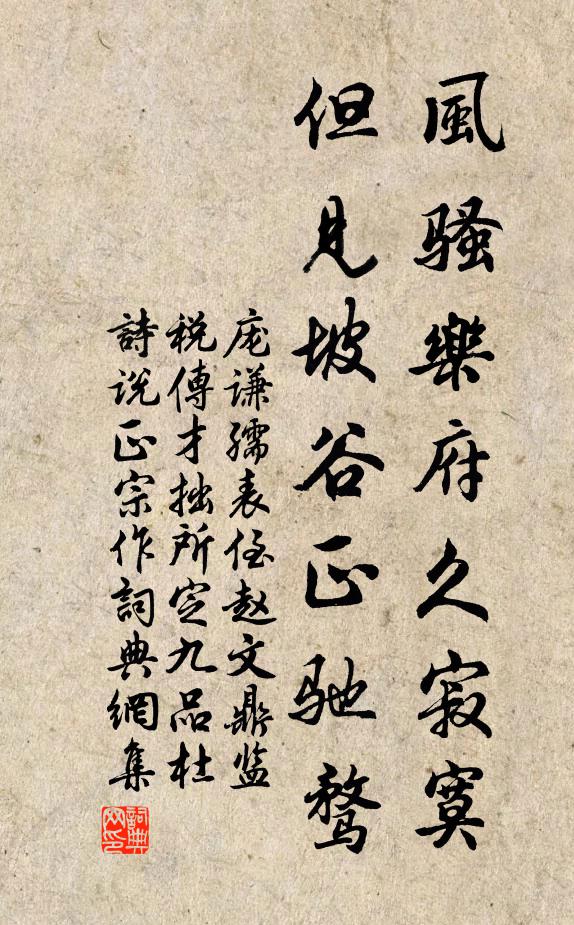 風騷樂府久寂寞
但見坡谷正馳騖
庞谦孺表侄赵文鼎监
税傳才拙所定九品杜
詩説正宗作詞典網集
詞典
网印